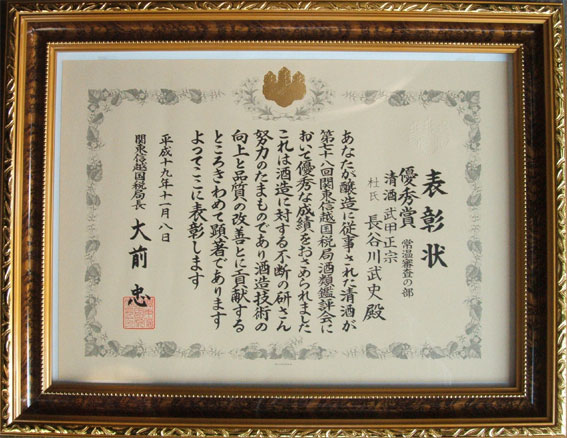 表彰状
優秀賞 常温審査の部
清酒 武甲正宗
杜氏 長谷川武史殿
あなたが醸造に従事された清酒が
第七十八回関東信越国税局酒類鑑評会に
おいて優秀な成績をおさめられました
これは酒造に対する不断の研さん
努力のたまものであり酒造技術の
向上と品質の改善とに貢献する
ところきわめて顕著であります
よってここに表彰します
平成十九年十一月八日
関東信越国税局長 大前 忠